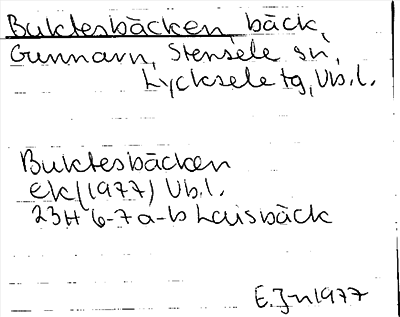 Buktesbäcken, bäck,
Gunnarn, Stensele sn,
Lycksele tg, Vb.l.
Buktesbäcken
ek (1977) Vb.l.
23H 6-7a-b Laisbäck
E.J-n 1977